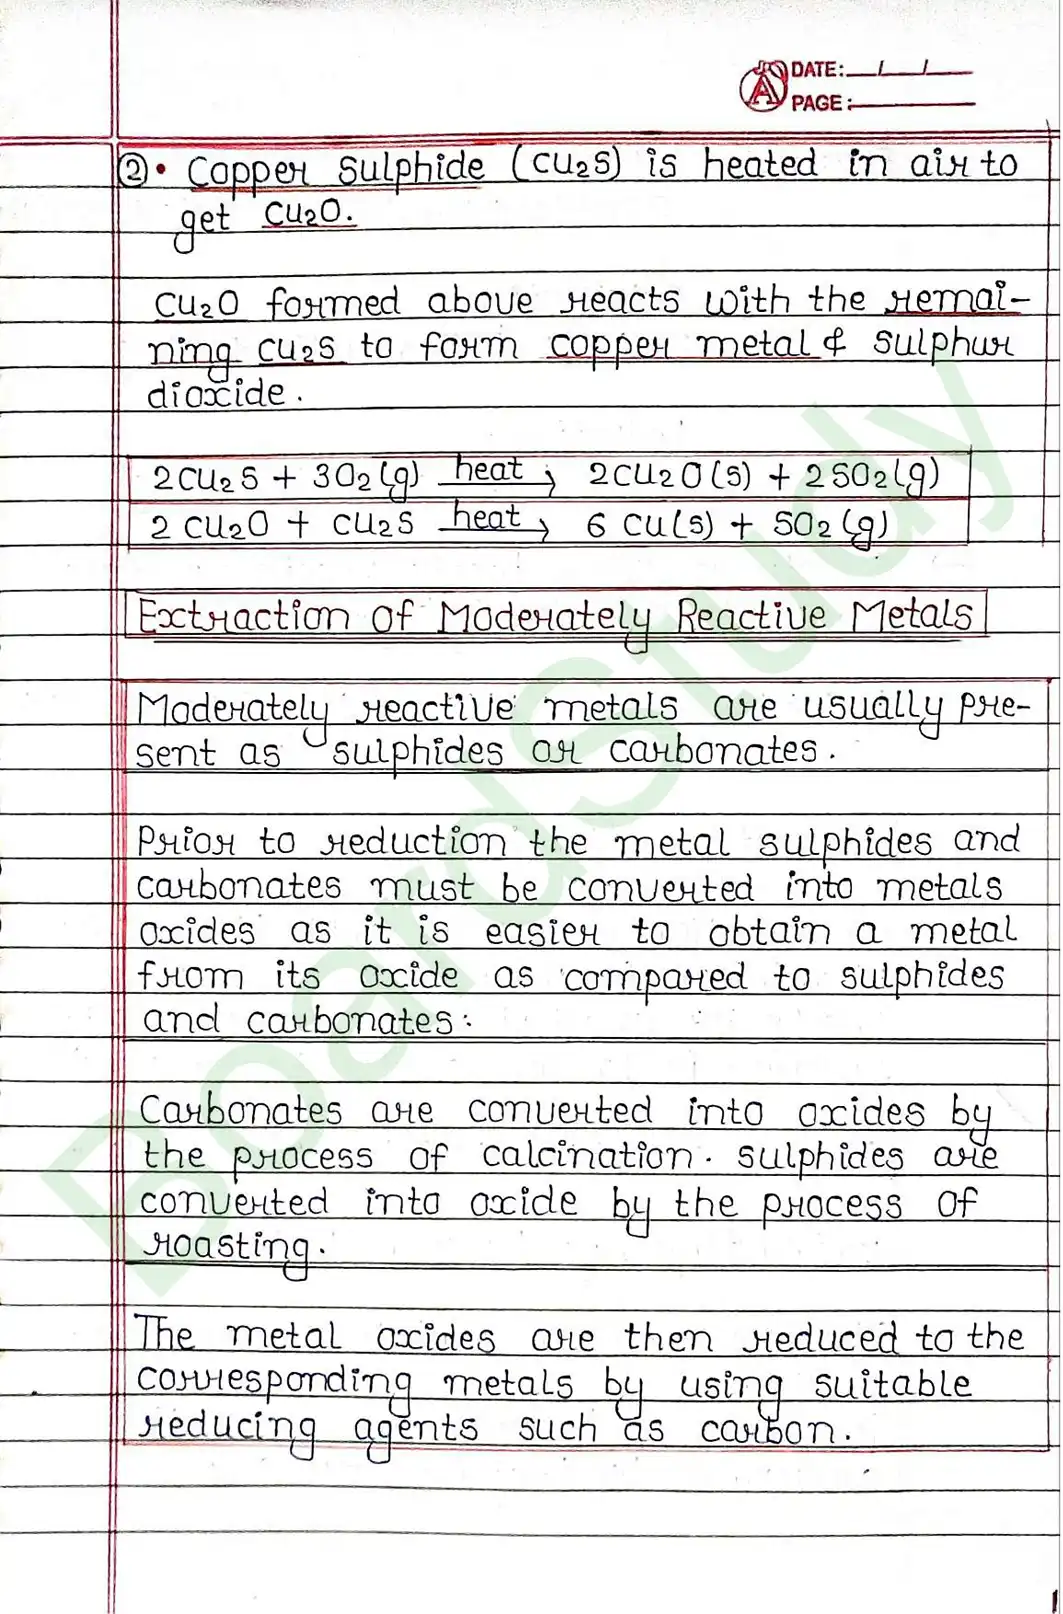 DATE: / /
PAGE:
②• Copper Sulphide (Cu2S) is heated in air to
get Cu2O.
Cu2O formed above reacts with the remai-
ning Cu2S to form copper metal & sulphur
dioxide.
2Cu2S + 3O2(g) heat → 2Cu2O(s) + 2SO2(g)
2Cu2O + Cu2S heat → 6Cu(s) + SO2(g)
Extraction of Moderately Reactive Metals
Moderately reactive metals are usually pre-
sent as sulphides or carbonates.
Prior to reduction the metal sulphides and
carbonates must be converted into metals
oxides as it is easier to obtain a metal
from its oxide as compared to sulphides
and carbonates.
Carbonates are converted into oxides by
the process of calcination. sulphides are
converted into oxide by the process of
roasting.
The metal oxides are then reduced to the
corresponding metals by using suitable
reducing agents such as carbon.
BoardStudy